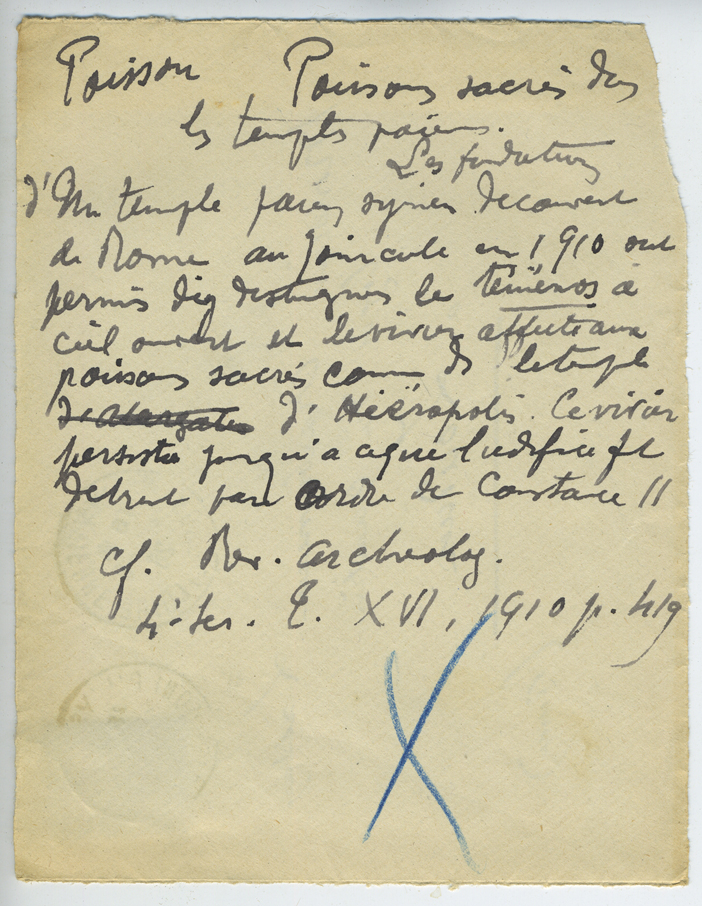 Poisson Poissons sacrés dans
les temples païens.
Les fondations
d'un temple païen syrien découvert
de Rome au Janicule en 1910 ont
permis distinguer le téménos à
ciel ouvert et le vivier affecté aux
poissons sacrés comme ds le temple
d'Atargatis d'Hiérapolis. Ce vivier
persista jusqu'à ce que l'édifice fut
détruit par ordre de Constance II
cf. Rev. archeolog.
4e ser. T. XVI, 1910 p. 419